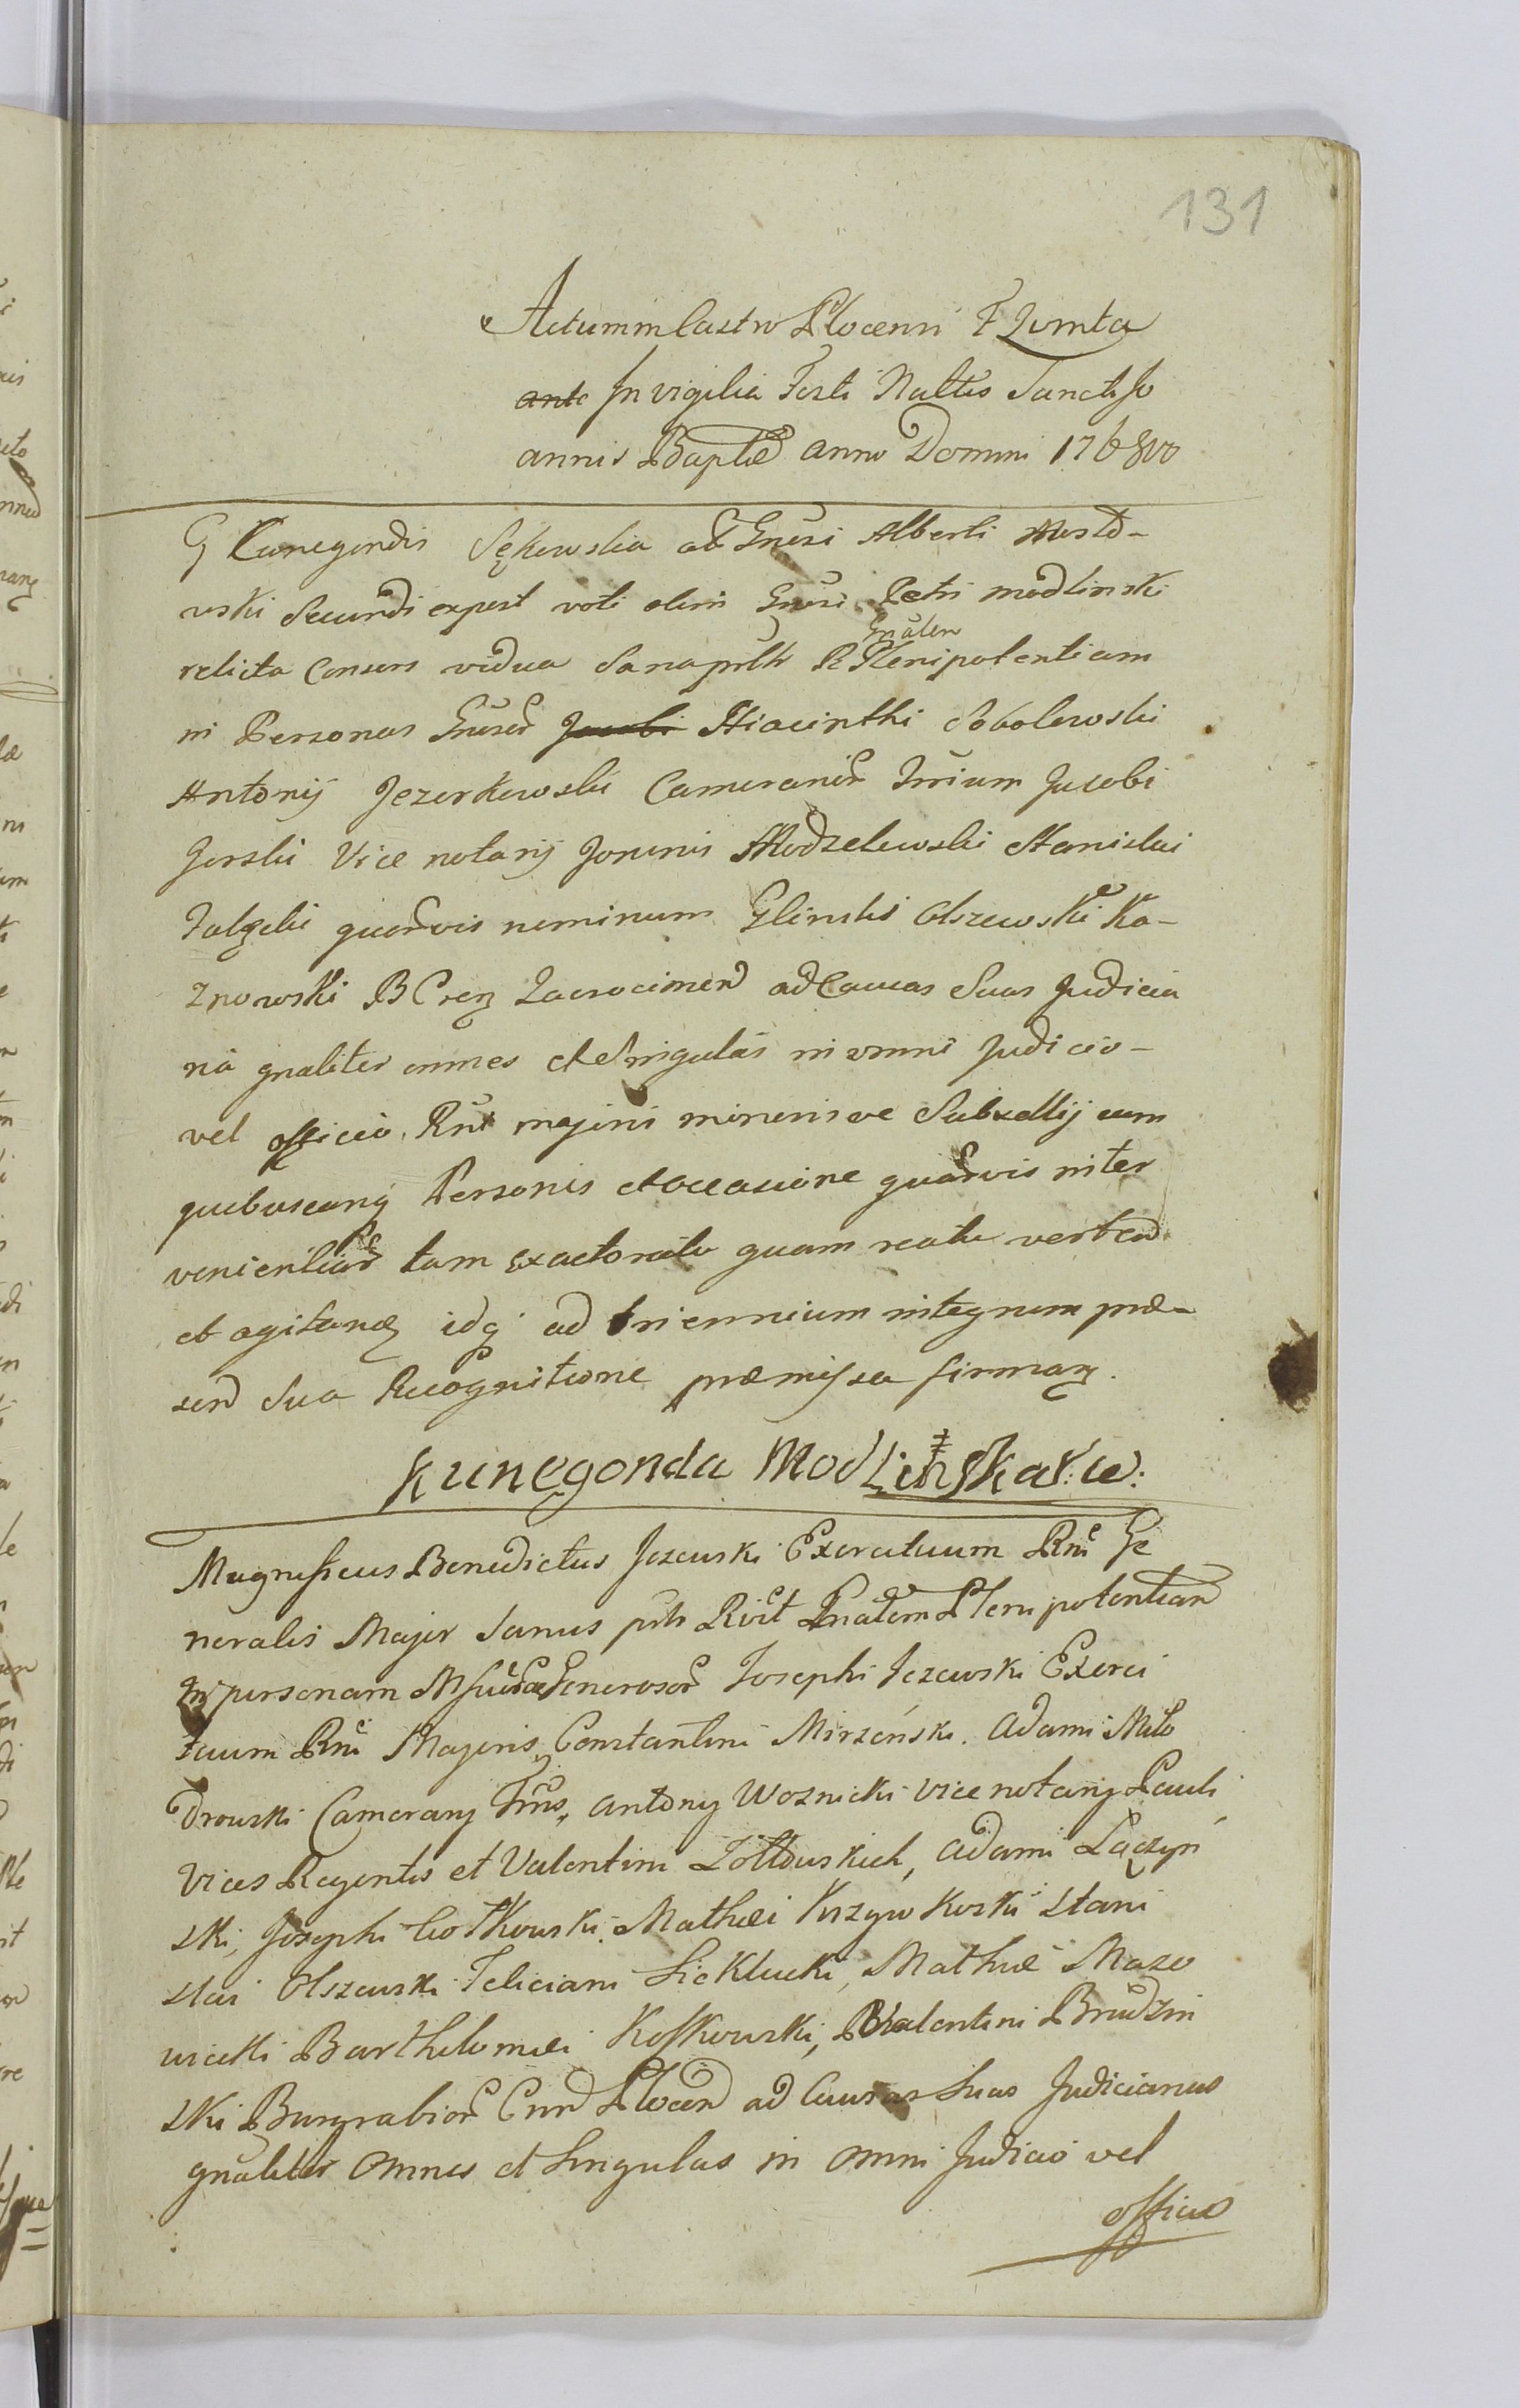 131
Actum in Castro Plocensi F Quinta
ante In vigilia Festi Natītis Sancti Jo
annis Baptæ anno Domini 1768vo
G Cunegondis Sękowska ab Gnŭsi Alberti
uski Secundi expost voti olim Gnŭsi Petri Modlinski
relicta Consors vidua Sana prth R Gnalem Plenipotentiam
in Personas Gnŭsor Jacobi Hiacinthi Sobolewski
Antonij Jezerkowski Camerarior Trrium Jacobi
Gorski Vice notarij Joannis Modzelewski Stanislai
quorvis nominum Glinski Olszewski Ka-
znowski B C Zacrocimen ad Causas Suas Judicia
riă gnaliter omnes et Singulas in omni Judicio-
vel officio Rni majoris minorisve Subsellij cum
quibuscunq Personis et occasione quarvis inter
venientiar tam exactoratu quam reatu verten
et agitan idq ad triennium integrum præ-
sen Sua Recognitione præmissa firman.
Kunegonda Modlinska
Magnificus Benedictus Jezewski Exercituum Rni Ge
neralis Major Sanus prth Rcit Gnalem Plenipotentiam
in personam Generosor Josephi Jezewski Exerci
tuum Rni Majoris, Constantini Mirzeński. Adami Milo
drowski Camerarij Trris, Antony Woznicki Vice notarij Pauli
Vices Regentis et Valentini Zołtowskich, Adami Łączyń
ski, Josephi Ciołkowski, Mathæi Krzywkoski Stani
slai Olszewski Feliciani Sieklucki, Mathiæ Mazo
wiecki Barthelomæi Koskowski, Valentini Brudzin
ski Burgrabior Cnn Plocen ad Causas Suas Judicianas
gnaliter Omnes et Singulas in Omni Judicio vel
officio